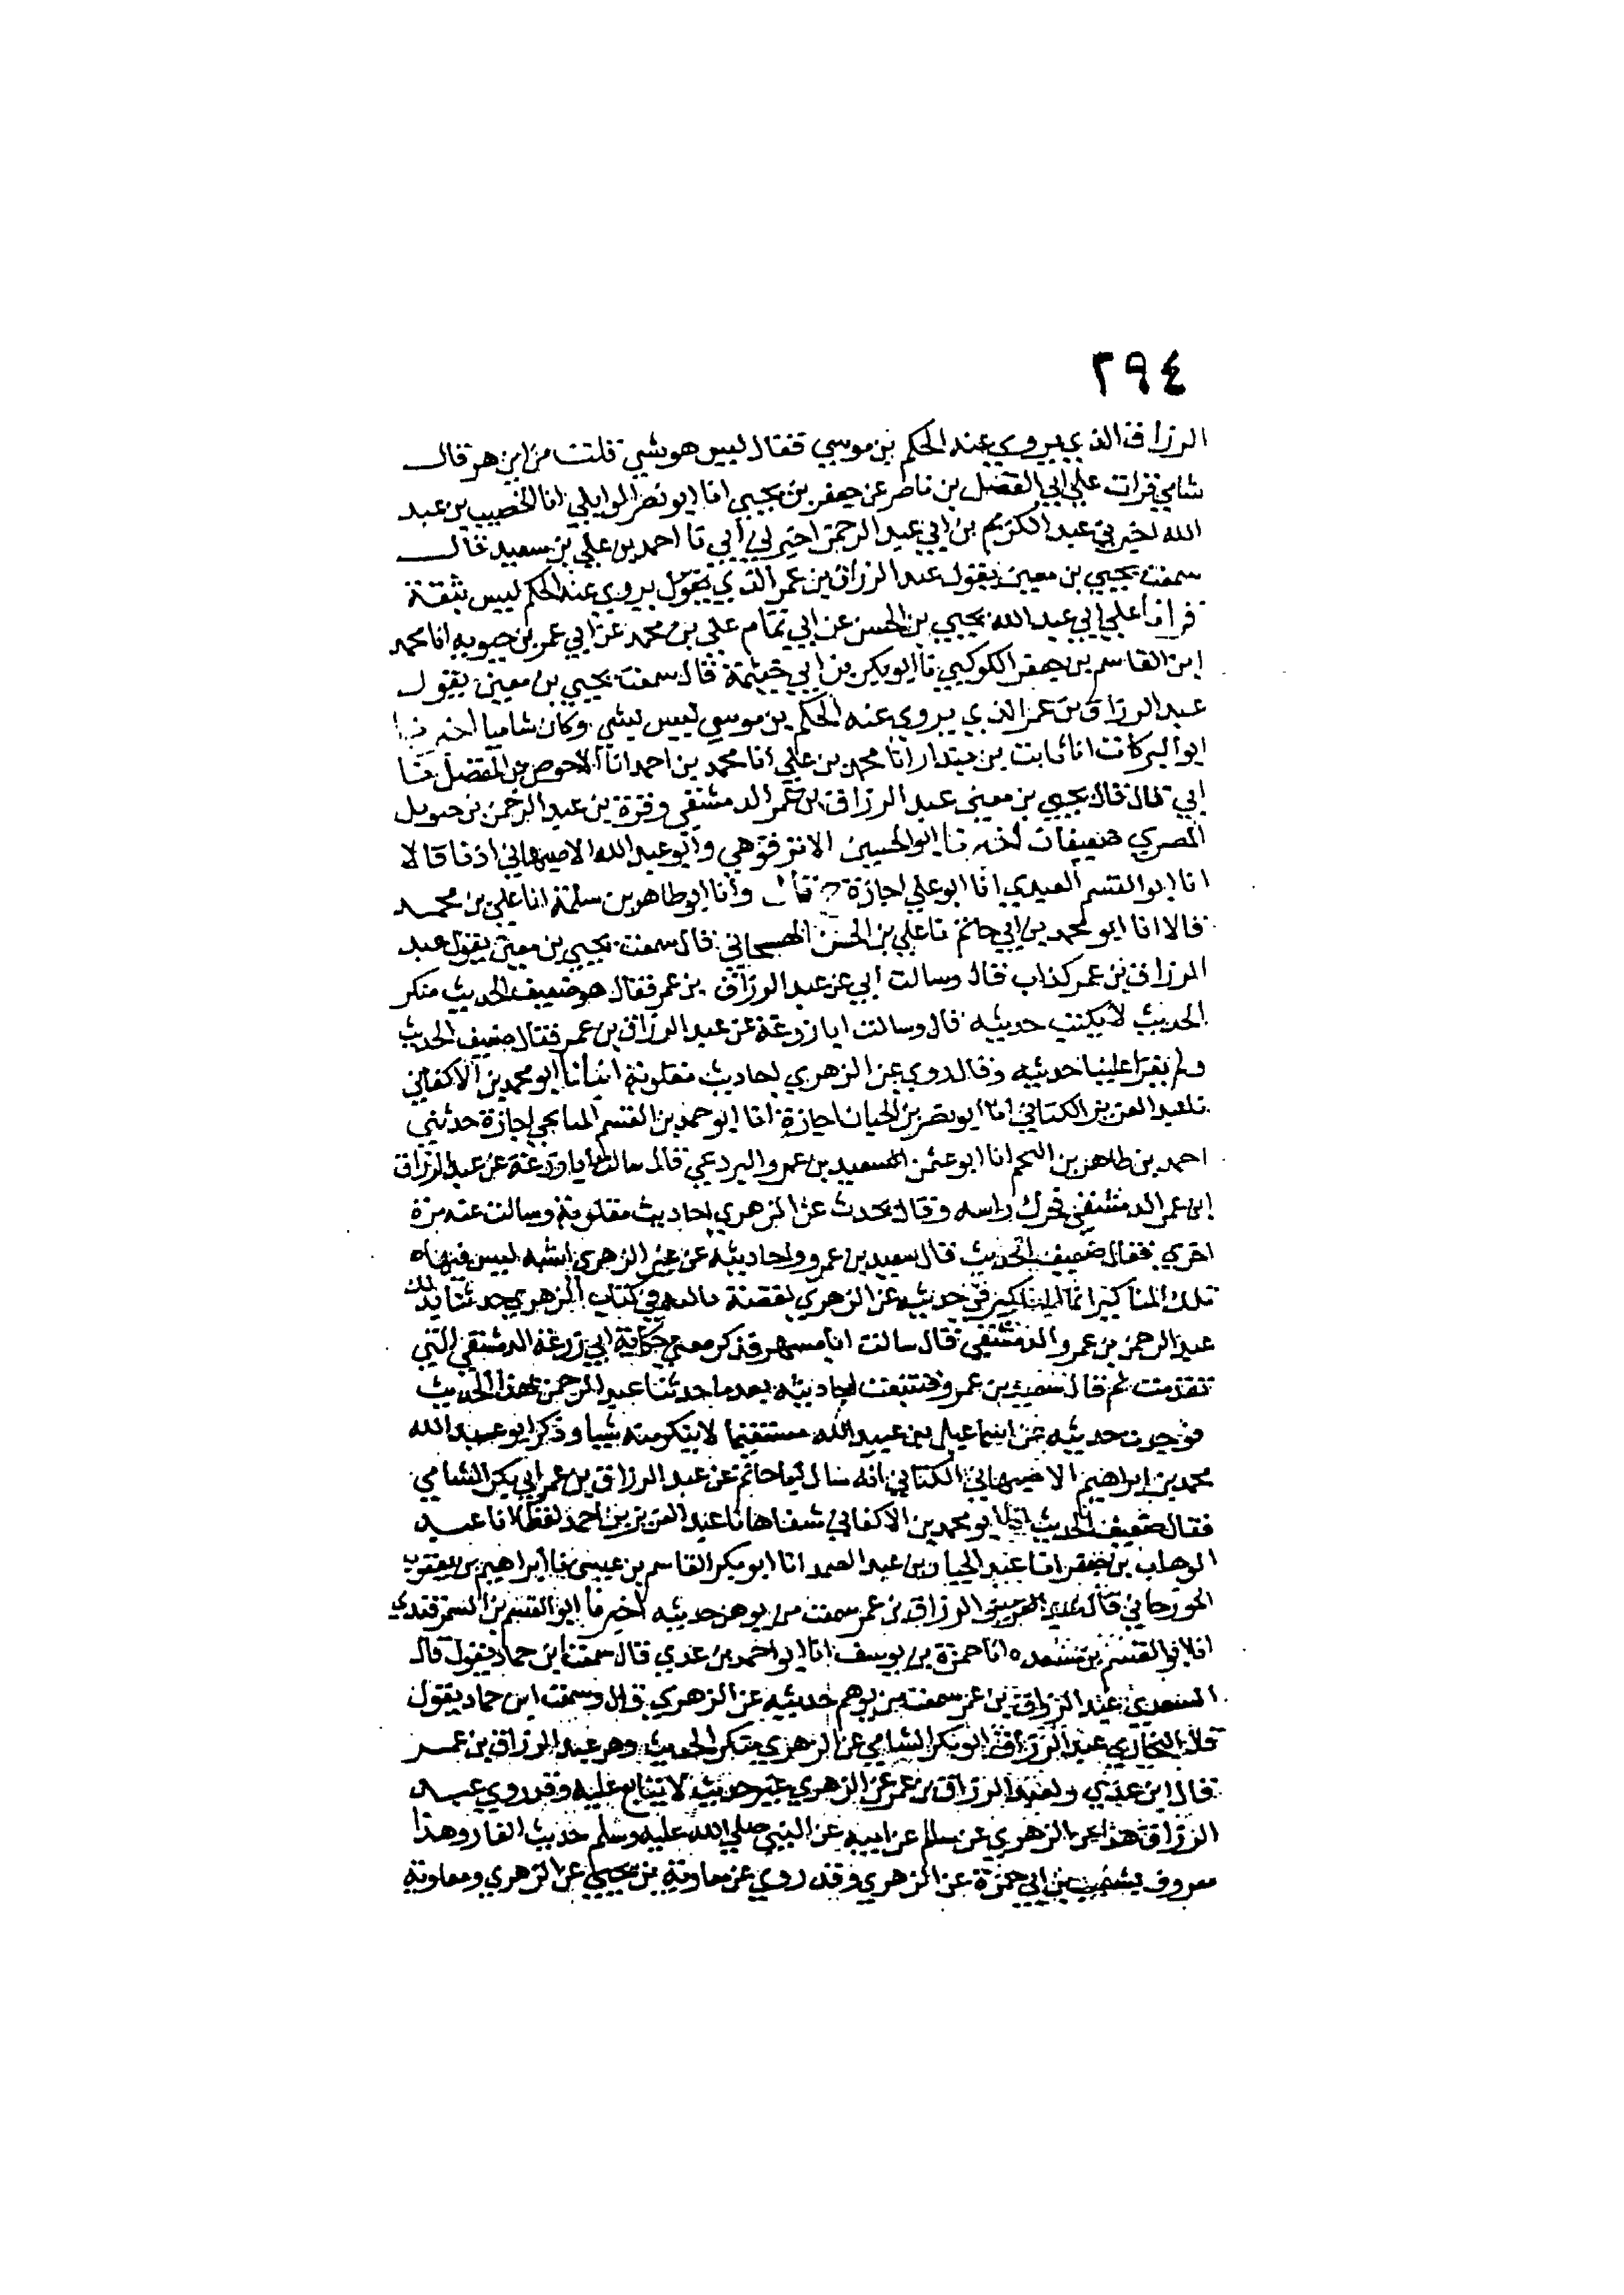 ٢٩٤
الرزاق الذي يروي عنه الحكم بن موسي فقال ليس هو بشي قلت من اين هو قال
شامي قرات علي ابي الفضل بن ناصر عن جعفر بن يحيي انا ابو نصر الوايلي انا الخصيب بن عبد
الله اخبرني عبد الكريم بن ابي عبد الرحمن اخبرني أبي نا احمد بن علي بن سعيد قال
سمعت يحيي بن معين يقول عبد الرزاق بن عمر الذي يروي عنه الحكم ليس بثقة
قرانا علي ابي عبد الله يحيي بن الحسن عن ابي تمام علي بن محمد عن ابي عمر بن حيويه انا محمد
ابن القاسم بن جعفر الكوكبي نا ابو بكر بن ابي خيثمة قال سمعت يحيي بن معين يقول
عبد الرزاق بن عمر الذي يروي عنه الحكم بن موسي ليس بشي وكان شاميا اخبرنا
ابو البركات انا ثابت بن بندار انا محمد بن علي انا محمد بن احمد انا الاحوص بن المفضل نا
ابي قال قال يحيي بن معين عبد الرزاق بن عمر الدمشقي وقرة بن عبد الرحمن بن حيويل
المصري ضعيفان اخبرنا ابو الحسين الابرقوهي وابو عبد الله الاصبهاني اذنا قالا
انا ابو القسم العبدي انا ابو علي اجازة ح قال وأنا ابو طاهر بن سلمة انا علي بن محمد
قالا انا ابو محمد بن ابي حاتم نا علي بن الحسن الهسجاني قال سمعت يحيي بن معين يقول عبد
الرزاق بن عمر كذاب قال وسالت أبي عن عبد الرزاق بن عمر فقال هو ضعيف الحديث منكر
الحديث لا يكتب حديثه قال وسالت ابا زرعة عن عبد الرزاق بن عمر فقال ضعيف الحديث
ولم يقرا علينا حديثه وقال روي عن الزهري احاديث مقلوبة انبأنا ابو محمد بن الاكفاني
نا عبد العزيز الكتاني انا ابو نصر بن الجبان اجازة انا ابو حمد بن القسم الميانجي اجازة حدثني
احمد بن طاهر بن النجم انا ابو عثمن سعيد بن عمرو البردعي قال سالت أبا زرعة عن عبد الرزاق
ابن عمر الدمشقي فحرك راسه وقال يحدث عن الزهري احاديث مقلوبة وسالت عنه مرة
اخري فقال ضعيف الحديث قال سعيد بن عمرو واحاديثه عن غير الزهري اشبه ليس فيها
تلك المناكير انما المناكير في حديثه عن الزهري لقصة في كتاب الزهري حدثنا بذلك
عبد الرحمن بن عمرو الدمشقي قال سالت ابا مسهر فذكر معني حكاية ابي زرعة الدمشقي التي
تقدمت ثم قال سعيد بن عمرو فتتبعت احاديثه بعد ما حدثنا عبد الرحمن بهذا الحديث
فوجدت حديثه عن اسماعيل بن عبيد الله مستقيما لا ينكر منه شيا وذكر ابو عبد الله
محمد بن ابراهيم الاصبهاني الكتاني انه سال ابا حاتم عن عبد الرزاق بن عمر ابي بكر الشامي
فقال ضعيف الحديث انبا ابو محمد بن الاكفاني شفاها نا عبد العزيز بن احمد لفظا انا عبد
الوهاب بن جعفر انا عبد الجبار بن عبد الصمد انا ابو بكر القاسم بن عيسي نا ابراهيم بن يعقوب
الجوزجاني قال عبد الرزاق بن عمر سمعت من يوهن حديثه اخبرنا ابو القسم بن السمرقندي
انا ابو القسم بن مسعده انا حمزة بن يوسف انا ابو احمد بن عدي قال سمعت ابن حماد يقول قال
السعدي عبد الرزاق بن عمر سمعت من يوهم حديثه عن الزهري قال وسمعت ابن حماد يقول
قال البخاري عبد الرزاق ابو بكر الشامي عن الزهري منكر الحديث وهو عبد الرزاق بن عمر
قال ابن عدي ولعبد الرزاق بن عمر عن الزهري غير حديث لا يتابع عليه وقد روي عبد
الرزاق هذا عن الزهري عن سالم عن ابيه عن النبي صلي الله عليه وسلم حديث الغار وهذا
معروف بشعيب بن ابي حمزة عن الزهري وقد روي عن معاوية بن يحيي عن الزهري ومعاوية